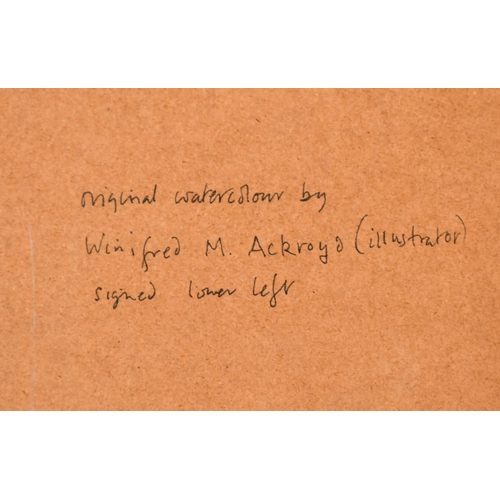 original watercolour by
Winifred M. Ackroyd (illustrator)
signed lower left.